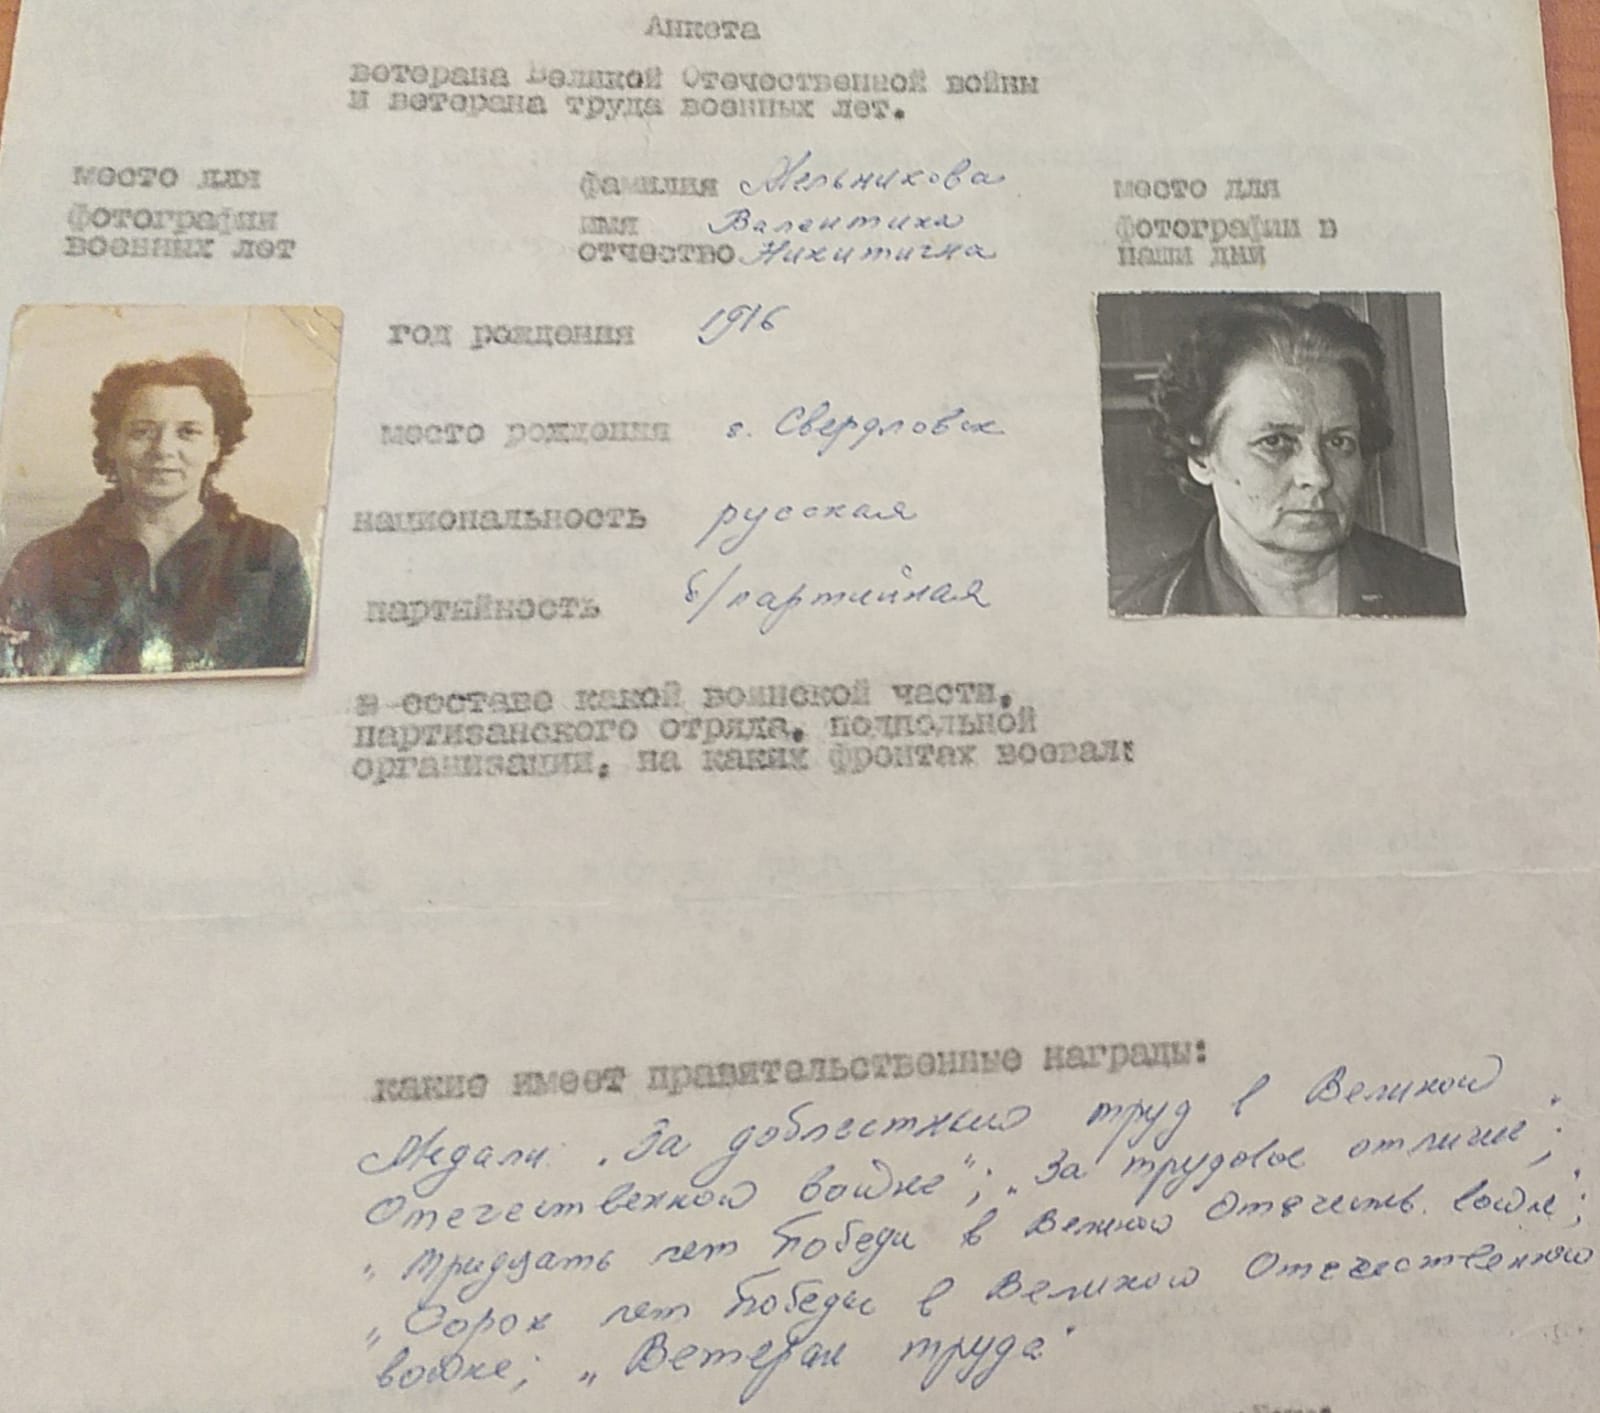 Анкета
ветерана Великой Отечественной войны
и ветерана труда военных лет.
место для
фотографии
военных лет
фамилия Мельникова
имя Валентина
отчество Никитична
место для
фотографии в
наши дни
год рождения 1916
место рождения г. Свердловск
национальность русская
партийность б/партийная
в составе какой воинской части,
партизанского отряда, подпольной
организации, на каких фронтах воевал:
какие имеет правительственные награды:
Медали: "За доблестный труд в Великой
Отечественной войне"; "За трудовое отличие";
"Тридцать лет Победы в Великой Отечеств. войне";
"Сорок лет Победы в Великой Отечественной
войне; "Ветеран труда"